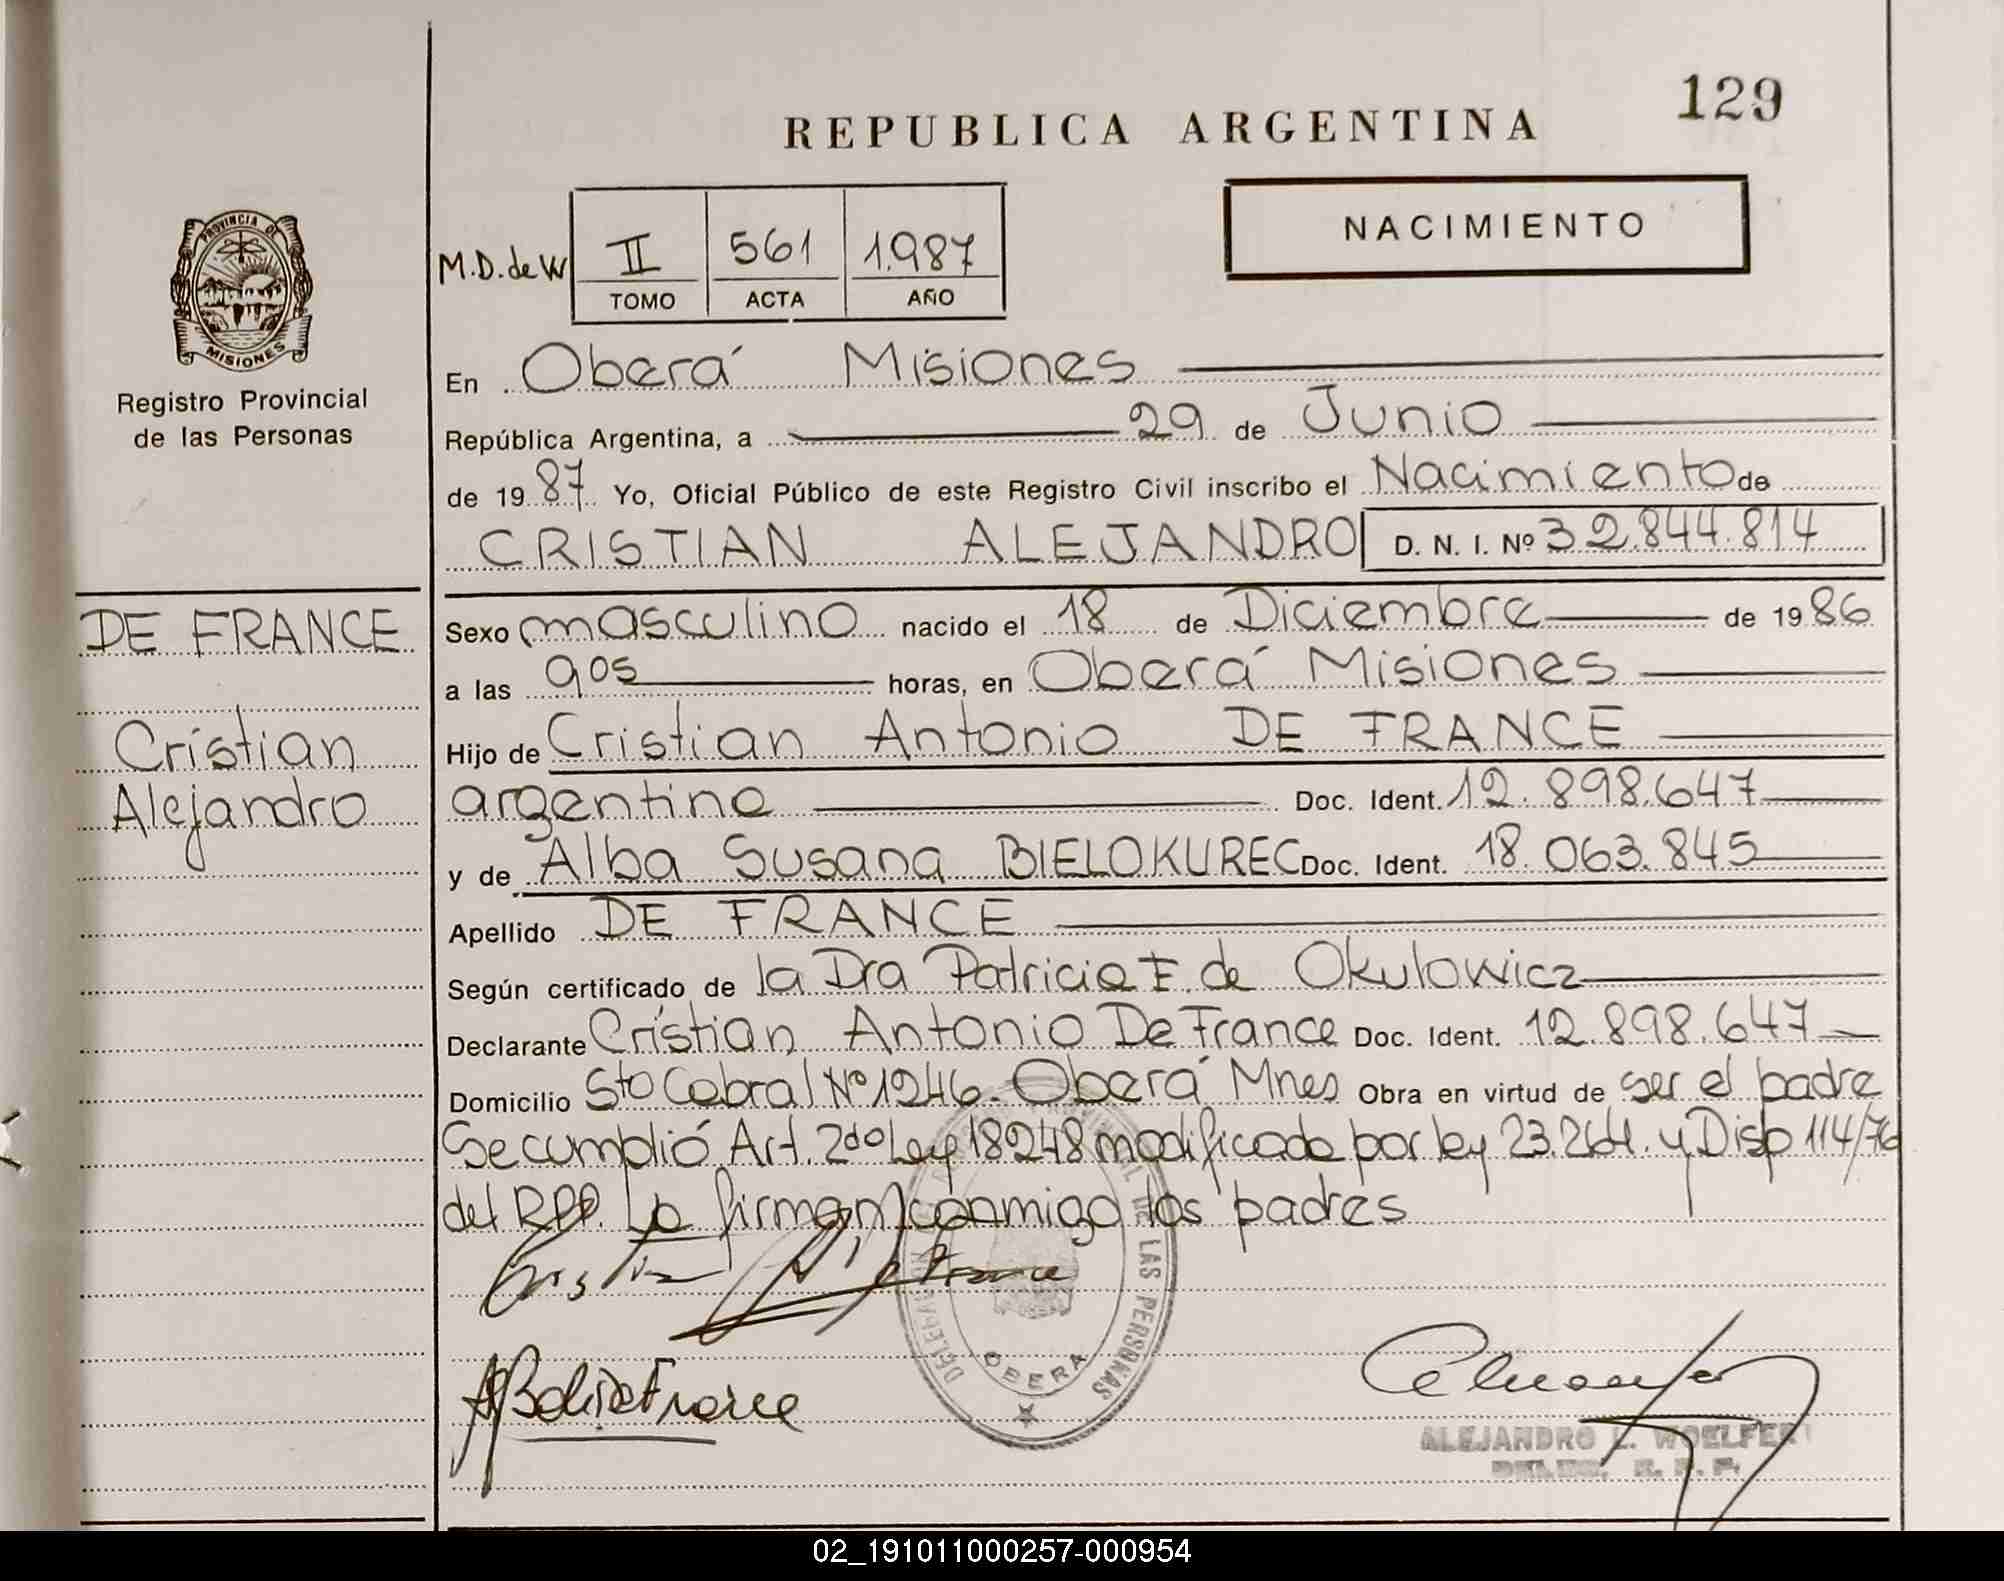 129
REPUBLICA ARGENTINA
NACIMIENTO
M.D. de W II 561 1.987
TOMO ACTA AÑO
PROVINCIA DE
MISIONES
Registro Provincial
de las Personas
En Oberá Misiones
República Argentina, a 29 de Junio
de 1987 Yo, Oficial Público de este Registro Civil inscribo el Nacimiento de
CRISTIAN ALEJANDRO D. N. I. Nº 32.844.814
DE FRANCE
Cristian
Alejandro
Sexo masculino nacido el 18 de Diciembre de 1986
a las 9 05 horas, en Oberá Misiones
Hijo de Cristian Antonio DE FRANCE
argentino Doc. Ident. 12.898.647
y de Alba Susana BIELOKUREC Doc. Ident. 18.063.845
Apellido DE FRANCE
Según certificado de la Dra Patricia F. de Okulowicz
Declarante Cristian Antonio De France Doc. Ident. 12.898.647
Domicilio Sto Cabral Nº 1246. Oberá Mnes Obra en virtud de ser el padre
Se cumplió Art. 2do Ley 18248 modificada por ley 23.264. y Disp 114/76
del RPP. La firman conmigo los padres
DE LAS PERSONAS
OBERA
ALEJANDRO L. WOELFERT
02_191011000257-000954